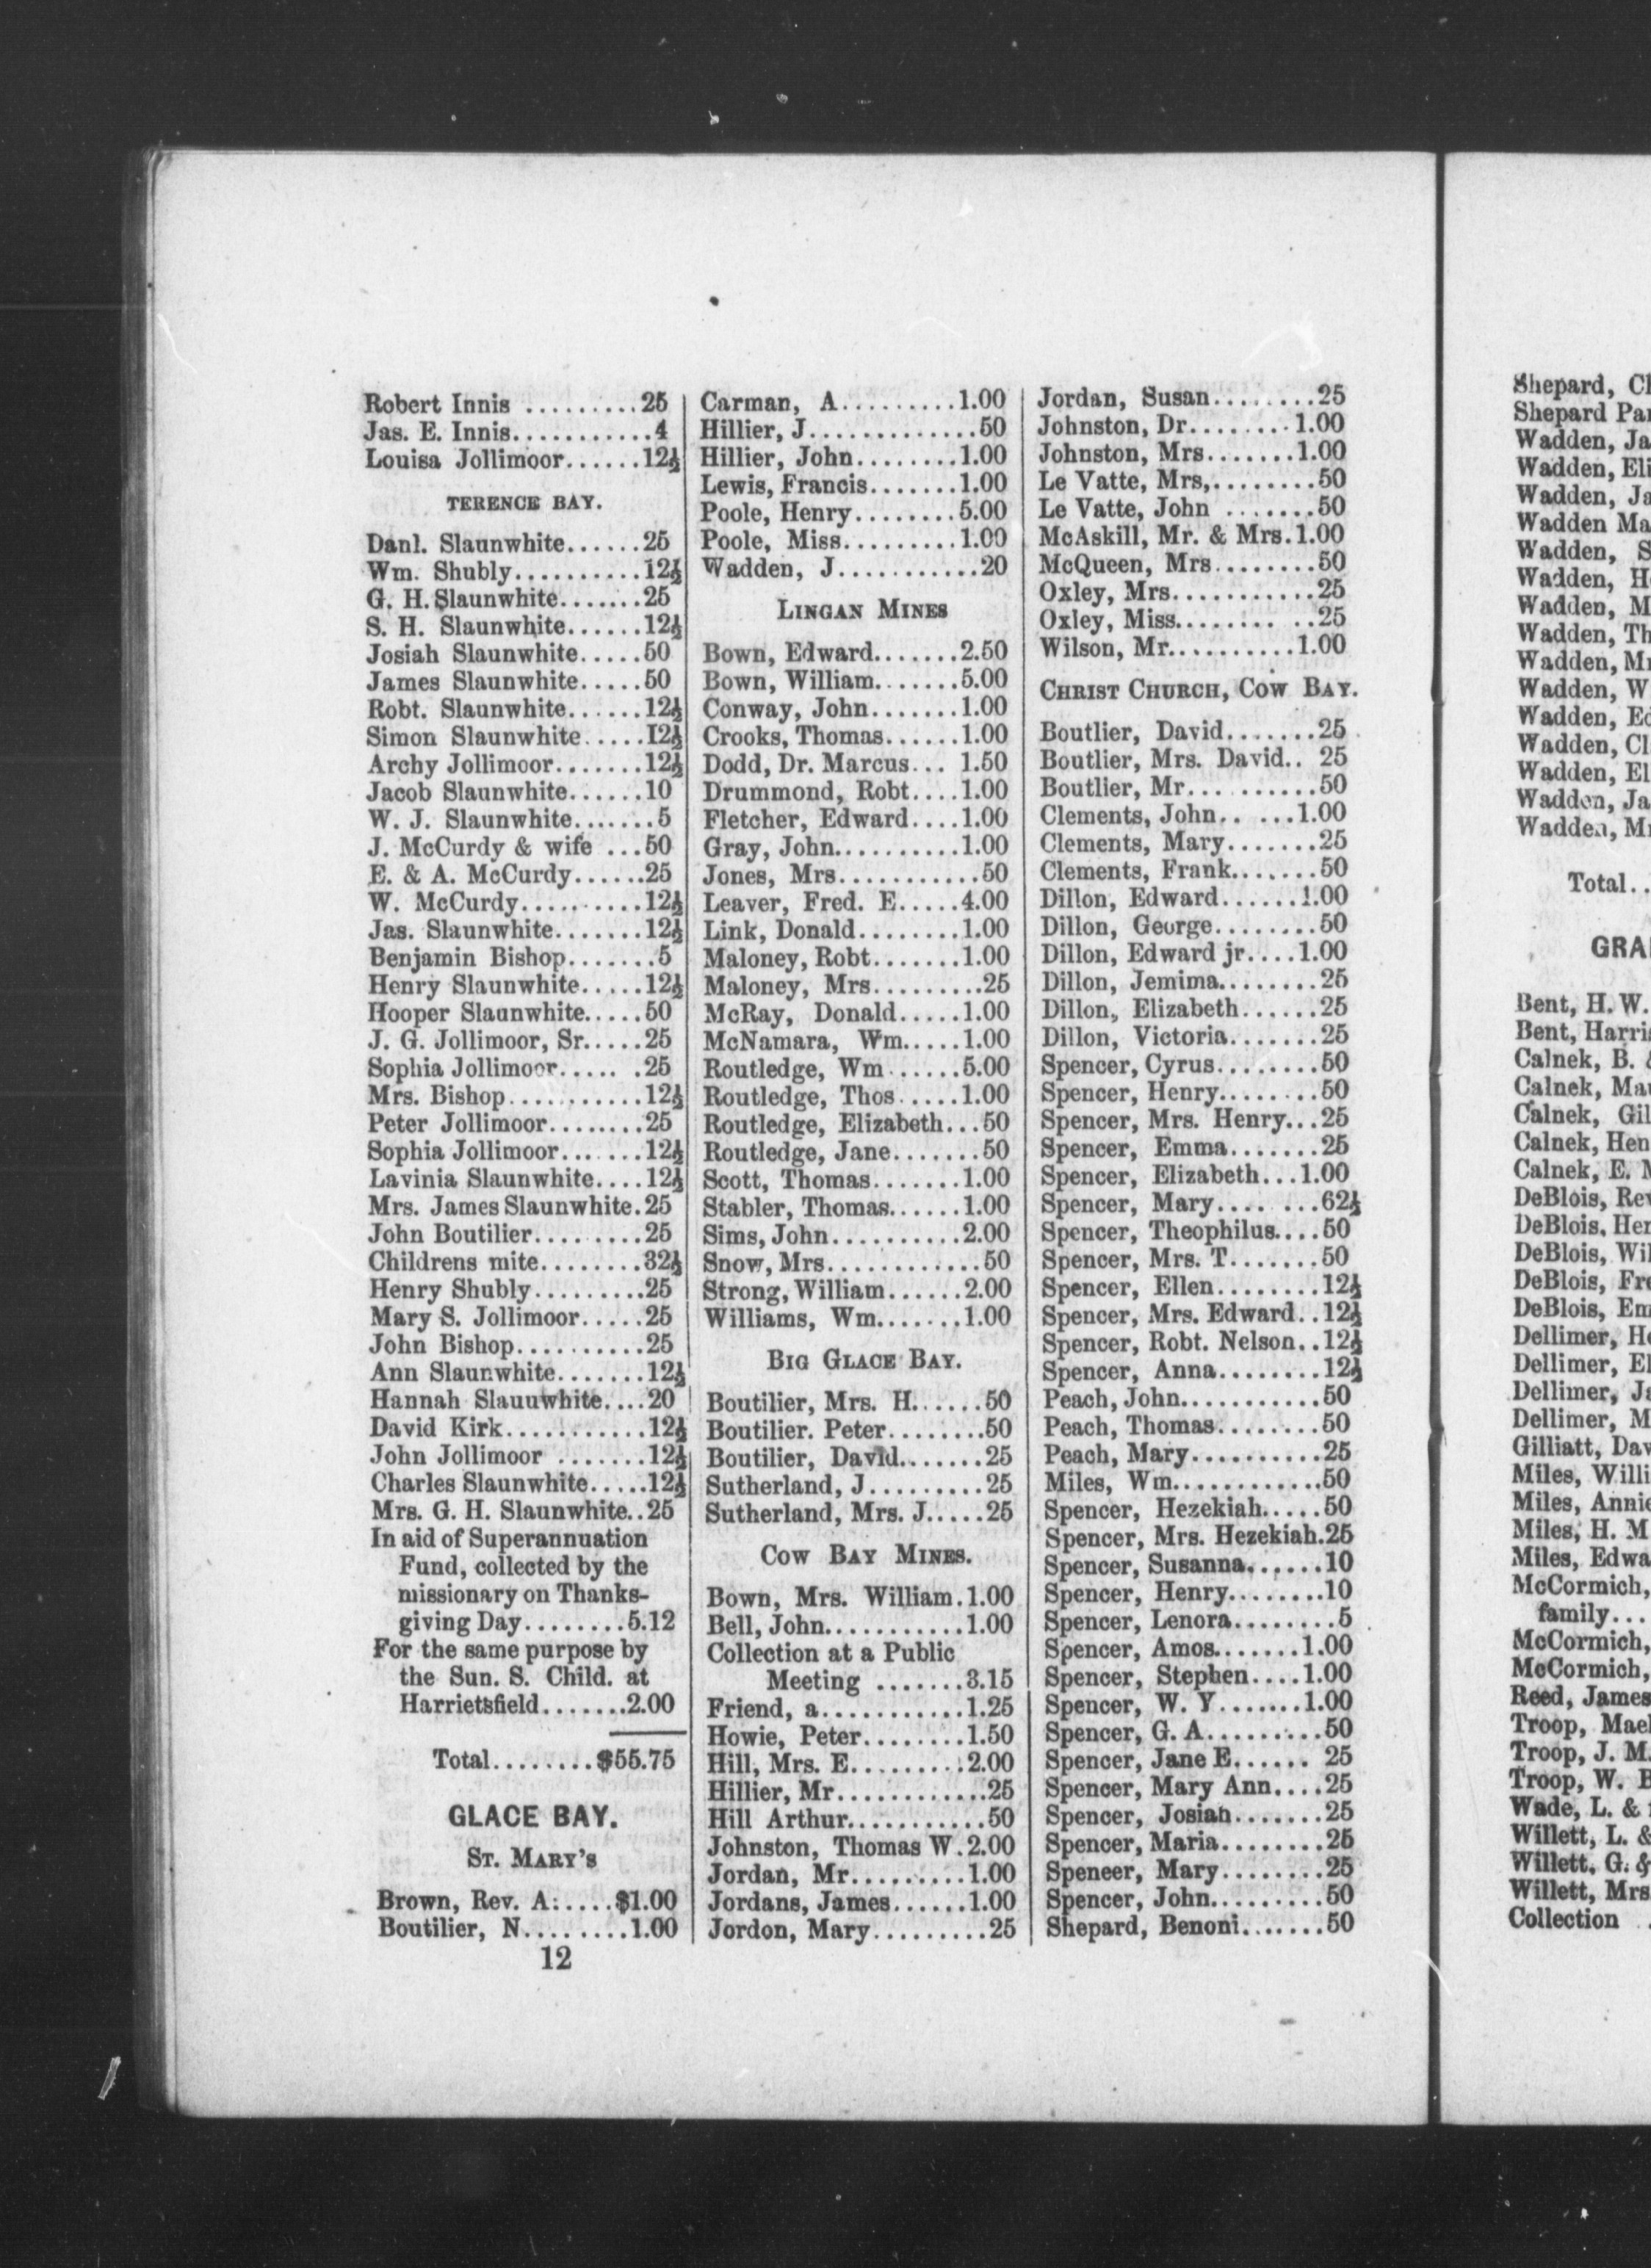 Robert Innis .........25
Jas. E. Innis...........4
Louisa Jollimoor......12½
TERENCE BAY.
Danl. Slaunwhite......25
Wm. Shubly..........12½
G. H. Slaunwhite.......25
S. H. Slaunwhite......12½
Josiah Slaunwhite.....50
James Slaunwhite.....50
Robt. Slaunwhite......12½
Simon Slaunwhite.....12½
Archy Jollimoor.......12½
Jacob Slaunwhite......10
W. J. Slaunwhite.......5
J. McCurdy & wife ...50
E. & A. McCurdy......25
W. McCurdy..........12½
Jas. Slaunwhite.......12½
Benjamin Bishop.......5
Henry Slaunwhite.....12½
Hooper Slaunwhite.....50
J. G. Jollimoor, Sr.....25
Sophia Jollimoor..... .25
Mrs. Bishop...........12½
Peter Jollimoor........25
Sophia Jollimoor.......12½
Lavinia Slaunwhite....12½
Mrs. James Slaunwhite.25
John Boutilier.........25
Childrens mite........32½
Henry Shubly.........25
Mary S. Jollimoor.....25
John Bishop..........25
Ann Slaunwhite.......12½
Hannah Slauuwhite....20
David Kirk...........12½
John Jollimoor .......12½
Charles Slaunwhite.....12½
Mrs. G. H. Slaunwhite..25
In aid of Superannuation
Fund, collected by the
missionary on Thanks-
giving Day........5.12
For the same purpose by
the Sun. S. Child. at
Harrietsfield.......2.00
Total........$55.75
GLACE BAY.
ST. MARY'S
Brown, Rev. A:.....$1.00
Boutilier, N.........1.00
12
Carman, A..........1.00
Hillier, J.............50
Hillier, John........1.00
Lewis, Francis.......1.00
Poole, Henry........5.00
Poole, Miss.........1.00
Wadden, J...........20
LINGAN MINES
Bown, Edward.......2.50
Bown, William.......5.00
Conway, John.......1.00
Crooks, Thomas......1.00
Dodd, Dr. Marcus... 1.50
Drummond, Robt....1.00
Fletcher, Edward....1.00
Gray, John..........1.00
Jones, Mrs...........50
Leaver, Fred. E.....4.00
Link, Donald........1.00
Maloney, Robt.......1.00
Maloney, Mrs.........25
McRay, Donald.....1.00
McNamara, Wm.....1.00
Routledge, Wm......5.00
Routledge, Thos.....1.00
Routledge, Elizabeth...50
Routledge, Jane.......50
Scott, Thomas.......1.00
Stabler, Thomas......1.00
Sims, John..........2.00
Snow, Mrs............50
Strong, William......2.00
Williams, Wm.......1.00
BIG GLACE BAY.
Boutilier, Mrs. H......50
Boutilier. Peter........50
Boutilier, David.......25
Sutherland, J.........25
Sutherland, Mrs. J.....25
COW BAY MINES.
Bown, Mrs. William.1.00
Bell, John...........1.00
Collection at a Public
Meeting .......3.15
Friend, a...........1.25
Howie, Peter........1.50
Hill, Mrs. E.........2.00
Hillier, Mr............25
Hill Arthur...........50
Johnston, Thomas W.2.00
Jordan, Mr.........1.00
Jordans, James......1.00
Jordon, Mary.........25
Jordan, Susan........25
Johnston, Dr........1.00
Johnston, Mrs.......1.00
Le Vatte, Mrs,........50
Le Vatte, John .......50
McAskill, Mr. & Mrs.1.00
McQueen, Mrs........50
Oxley, Mrs...........25
Oxley, Miss........ ..25
Wilson, Mr..........1.00
CHRIST CHURCH, COW BAY.
Boutlier, David.......25
Boutlier, Mrs. David.. 25
Boutlier, Mr... ......50
Clements, John.. ...1.00
Clements, Mary.......25
Clements, Frank.......50
Dillon, Edward......1.00
Dillon, George........50
Dillon, Edward jr....1.00
Dillon, Jemima........25
Dillon, Elizabeth......25
Dillon, Victoria.......25
Spencer, Cyrus........50
Spencer, Henry........50
Spencer, Mrs. Henry...25
Spencer, Emma.......25
Spencer, Elizabeth...1.00
Spencer, Mary.... ...62½
Spencer, Theophilus....50
Spencer, Mrs. T.......50
Spencer, Ellen........12½
Spencer, Mrs. Edward..12½
Spencer, Robt. Nelson..12½
Spencer, Anna........12½
Peach, John...........50
Peach, Thomas........50
Peach, Mary..........25
Miles, Wm............50
Spencer, Hezekiah.....50
Spencer, Mrs. Hezekiah.25
Spencer, Susanna......10
Spencer, Henry........10
Spencer, Lenora........5
Spencer, Amos.......1.00
Spencer, Stephen....1.00
Spencer, W. Y.......1.00
Spencer, G. A.........50
Spencer, Jane E...... 25
Spencer, Mary Ann....25
Spencer, Josiah.......25
Spencer, Maria........25
Speneer, Mary........25
Spencer, John.........50
Shepard, Benoni.......50
Shepard,
Shepard
Wadden,
Wadden,
Wadden,
Wadden
Wadden,
Wadden,
Wadden,
Wadden,
Wadden,
Wadden, W
Wadden,
Wadden,
Wadden,
Wadden,
Wadden,
Total..
Bent, H. W.
Bent,
Calnek, B.
Calnek,
Calnek,
Calnek,
Calnek, E.
DeBlois,
DeBlois,
DeBlois,
DeBlois,
DeBlois,
Dellimer,
Dellimer,
Dellimer,
Dellimer,
Gilliatt,
Miles,
Miles,
Miles, H. M
Miles,
McCormich,
family...
McCormich,
McCormich,
Reed, James
Troop,
Troop, J. M.
Troop, W.
Wade, L. &
Willett, L. &
Willett, G. &
Willett, Mrs
Collection